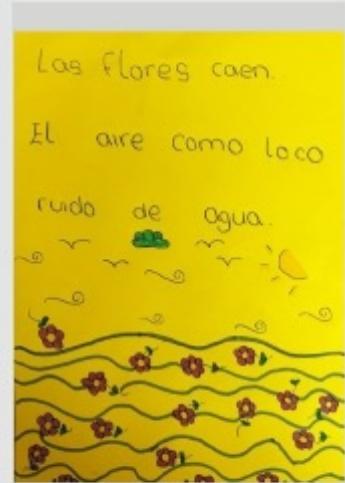 Las flores caen.
El aire como loco
ruido de agua.